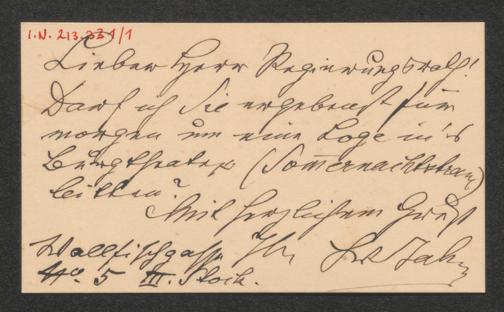 I.N. 213.331/1
Lieber Herr Regierungsrath!
Darf ich Sie ergebenst für
morgen um eine Loge in's
Burgtheater (Sommernachtstraum)
bitten?
Mit herzlichem Gruß
Wallfischgasse Ihr Jahn
No. 5 III. Stock.